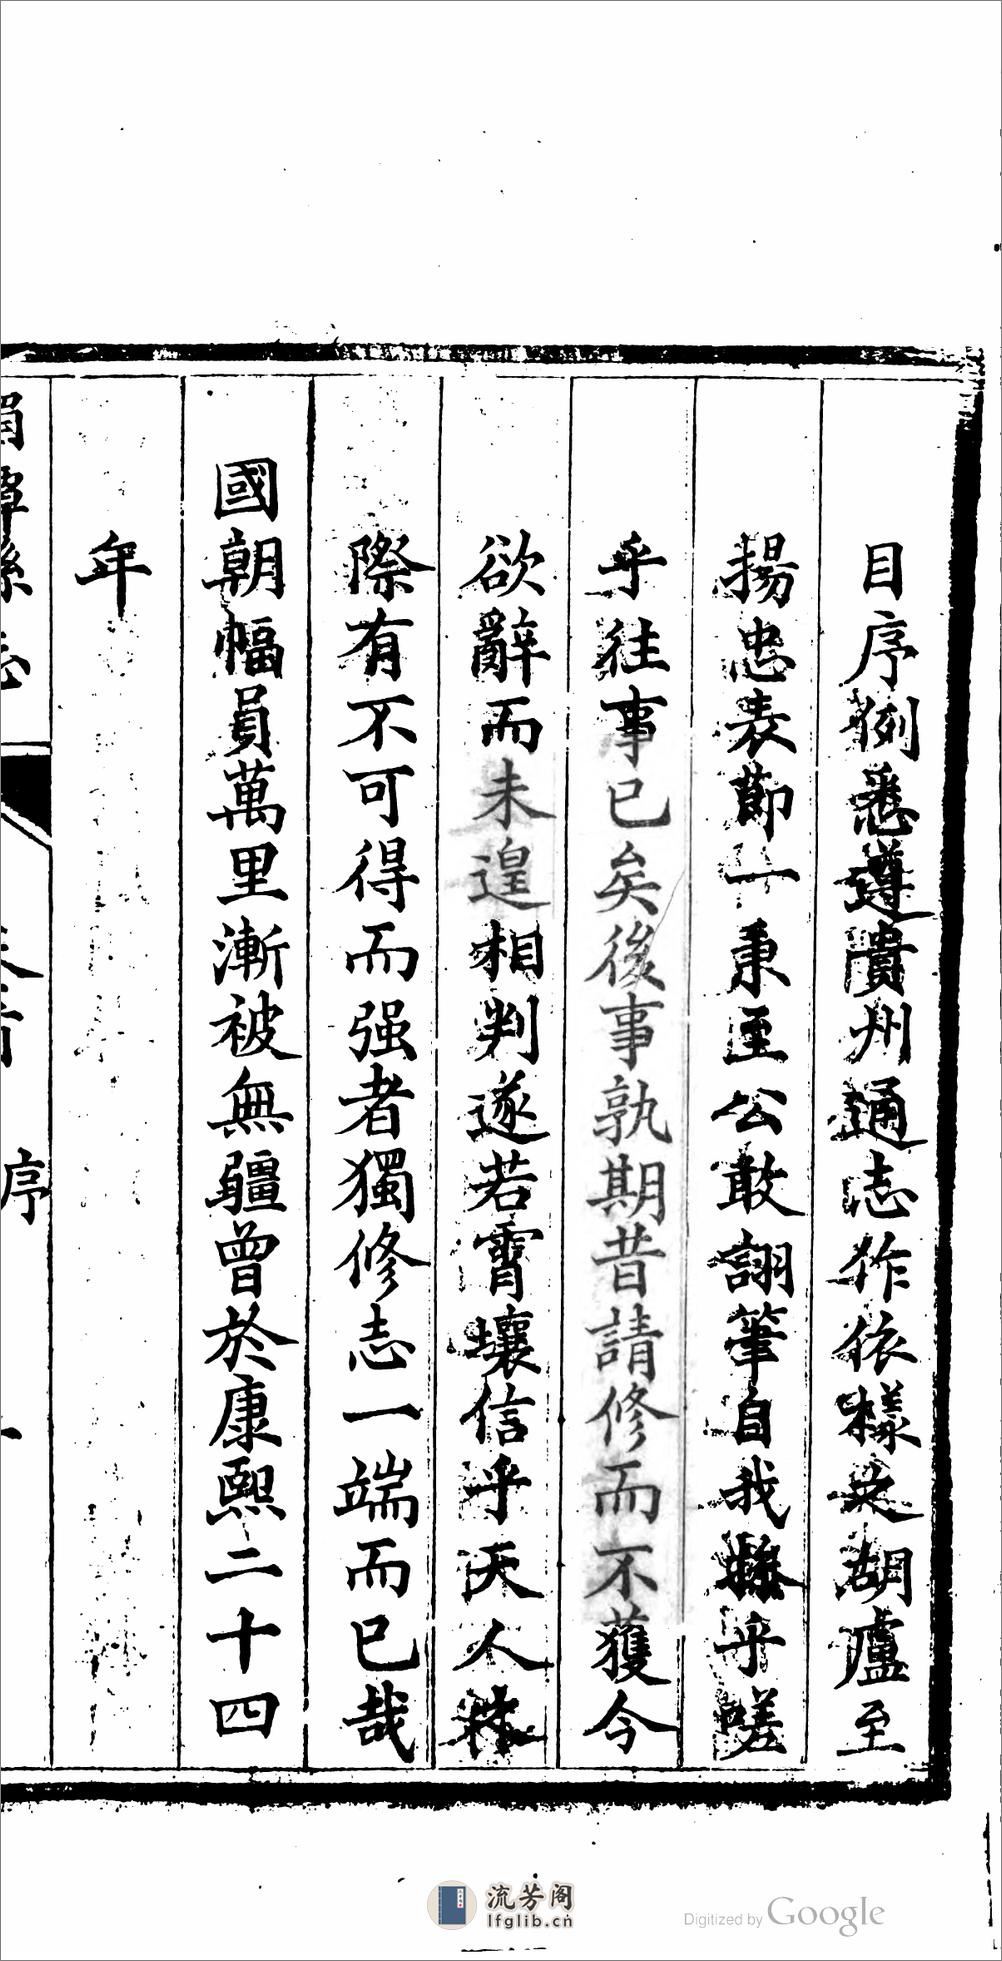 目序例悉遵貴州通志作依樣之胡盧至
揚忠表節一秉至公敢詡筆自我操乎嗟
乎往事已矣後事孰期昔請修而不獲今
欲辭而未遑相判遂若霄壤信乎天人
際有不可得而强者獨修志一端而已哉
國朝幅員萬里漸被無疆曾於康熙二十四
年
湄潭縣志 卷首 序 一
流芳阁
lfglib.cn
Digitized by Google